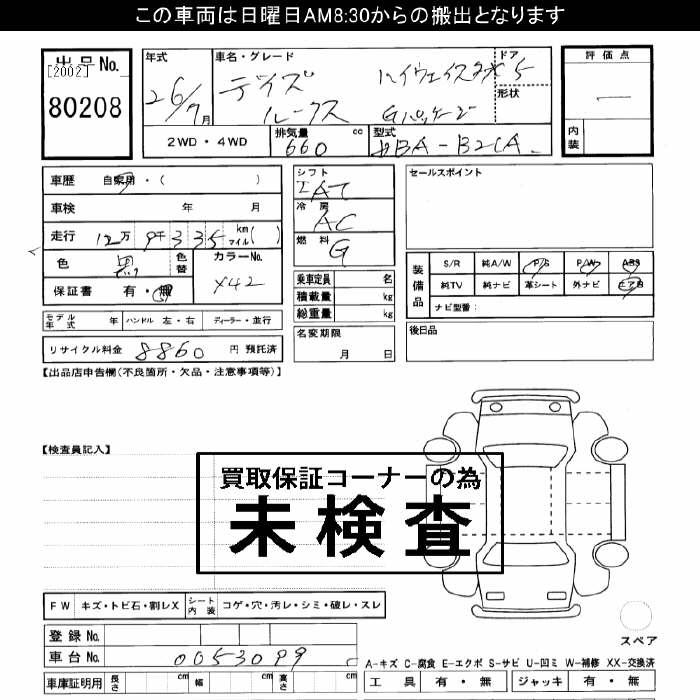 この車両は日曜日AM8:30からの搬出となります
出品No.
[2002]
80208
年式
26/7月
車名・グレード
デイズ ハイウェイスター
ルークス Gパッケージ
ドア
5
形状
評価点
内装
2WD・4WD
排気量 660 cc
型式 DBA-B21A
車歴 自家用・( )
車検 年 月
走行 12万9千335 km マイル( )
色 黒 色替 カラーNo. X42
保証書 有・無
モデル年式 年 ハンドル 左・右 ディーラー・並行
リサイクル料金 8860 円 預託済
シフト
IAT
冷房
AC
燃料
G
乗車定員 名
積載量 kg
総重量 kg
名変期限
月 日
セールスポイント
装備品
S/R 純A/W P/S P/W ABS
純TV 純ナビ 革シート 外ナビ エアB
ナビ型番:
後日品
【出品店申告欄(不良箇所・欠品・注意事項等)】
【検査員記入】
買取保証コーナーの為
未検査
FW キズ・トビ石・割レX シート内装 コゲ・穴・汚レ・シミ・破レ・スレ
登録No.
車台No. 0053099
車庫証明用 長さ cm 幅 cm 高さ cm
スペア
A-キズ C-腐食 E-エクボ S-サビ U-凹ミ W-補修 XX-交換済
工具 有・無 ジャッキ 有・無